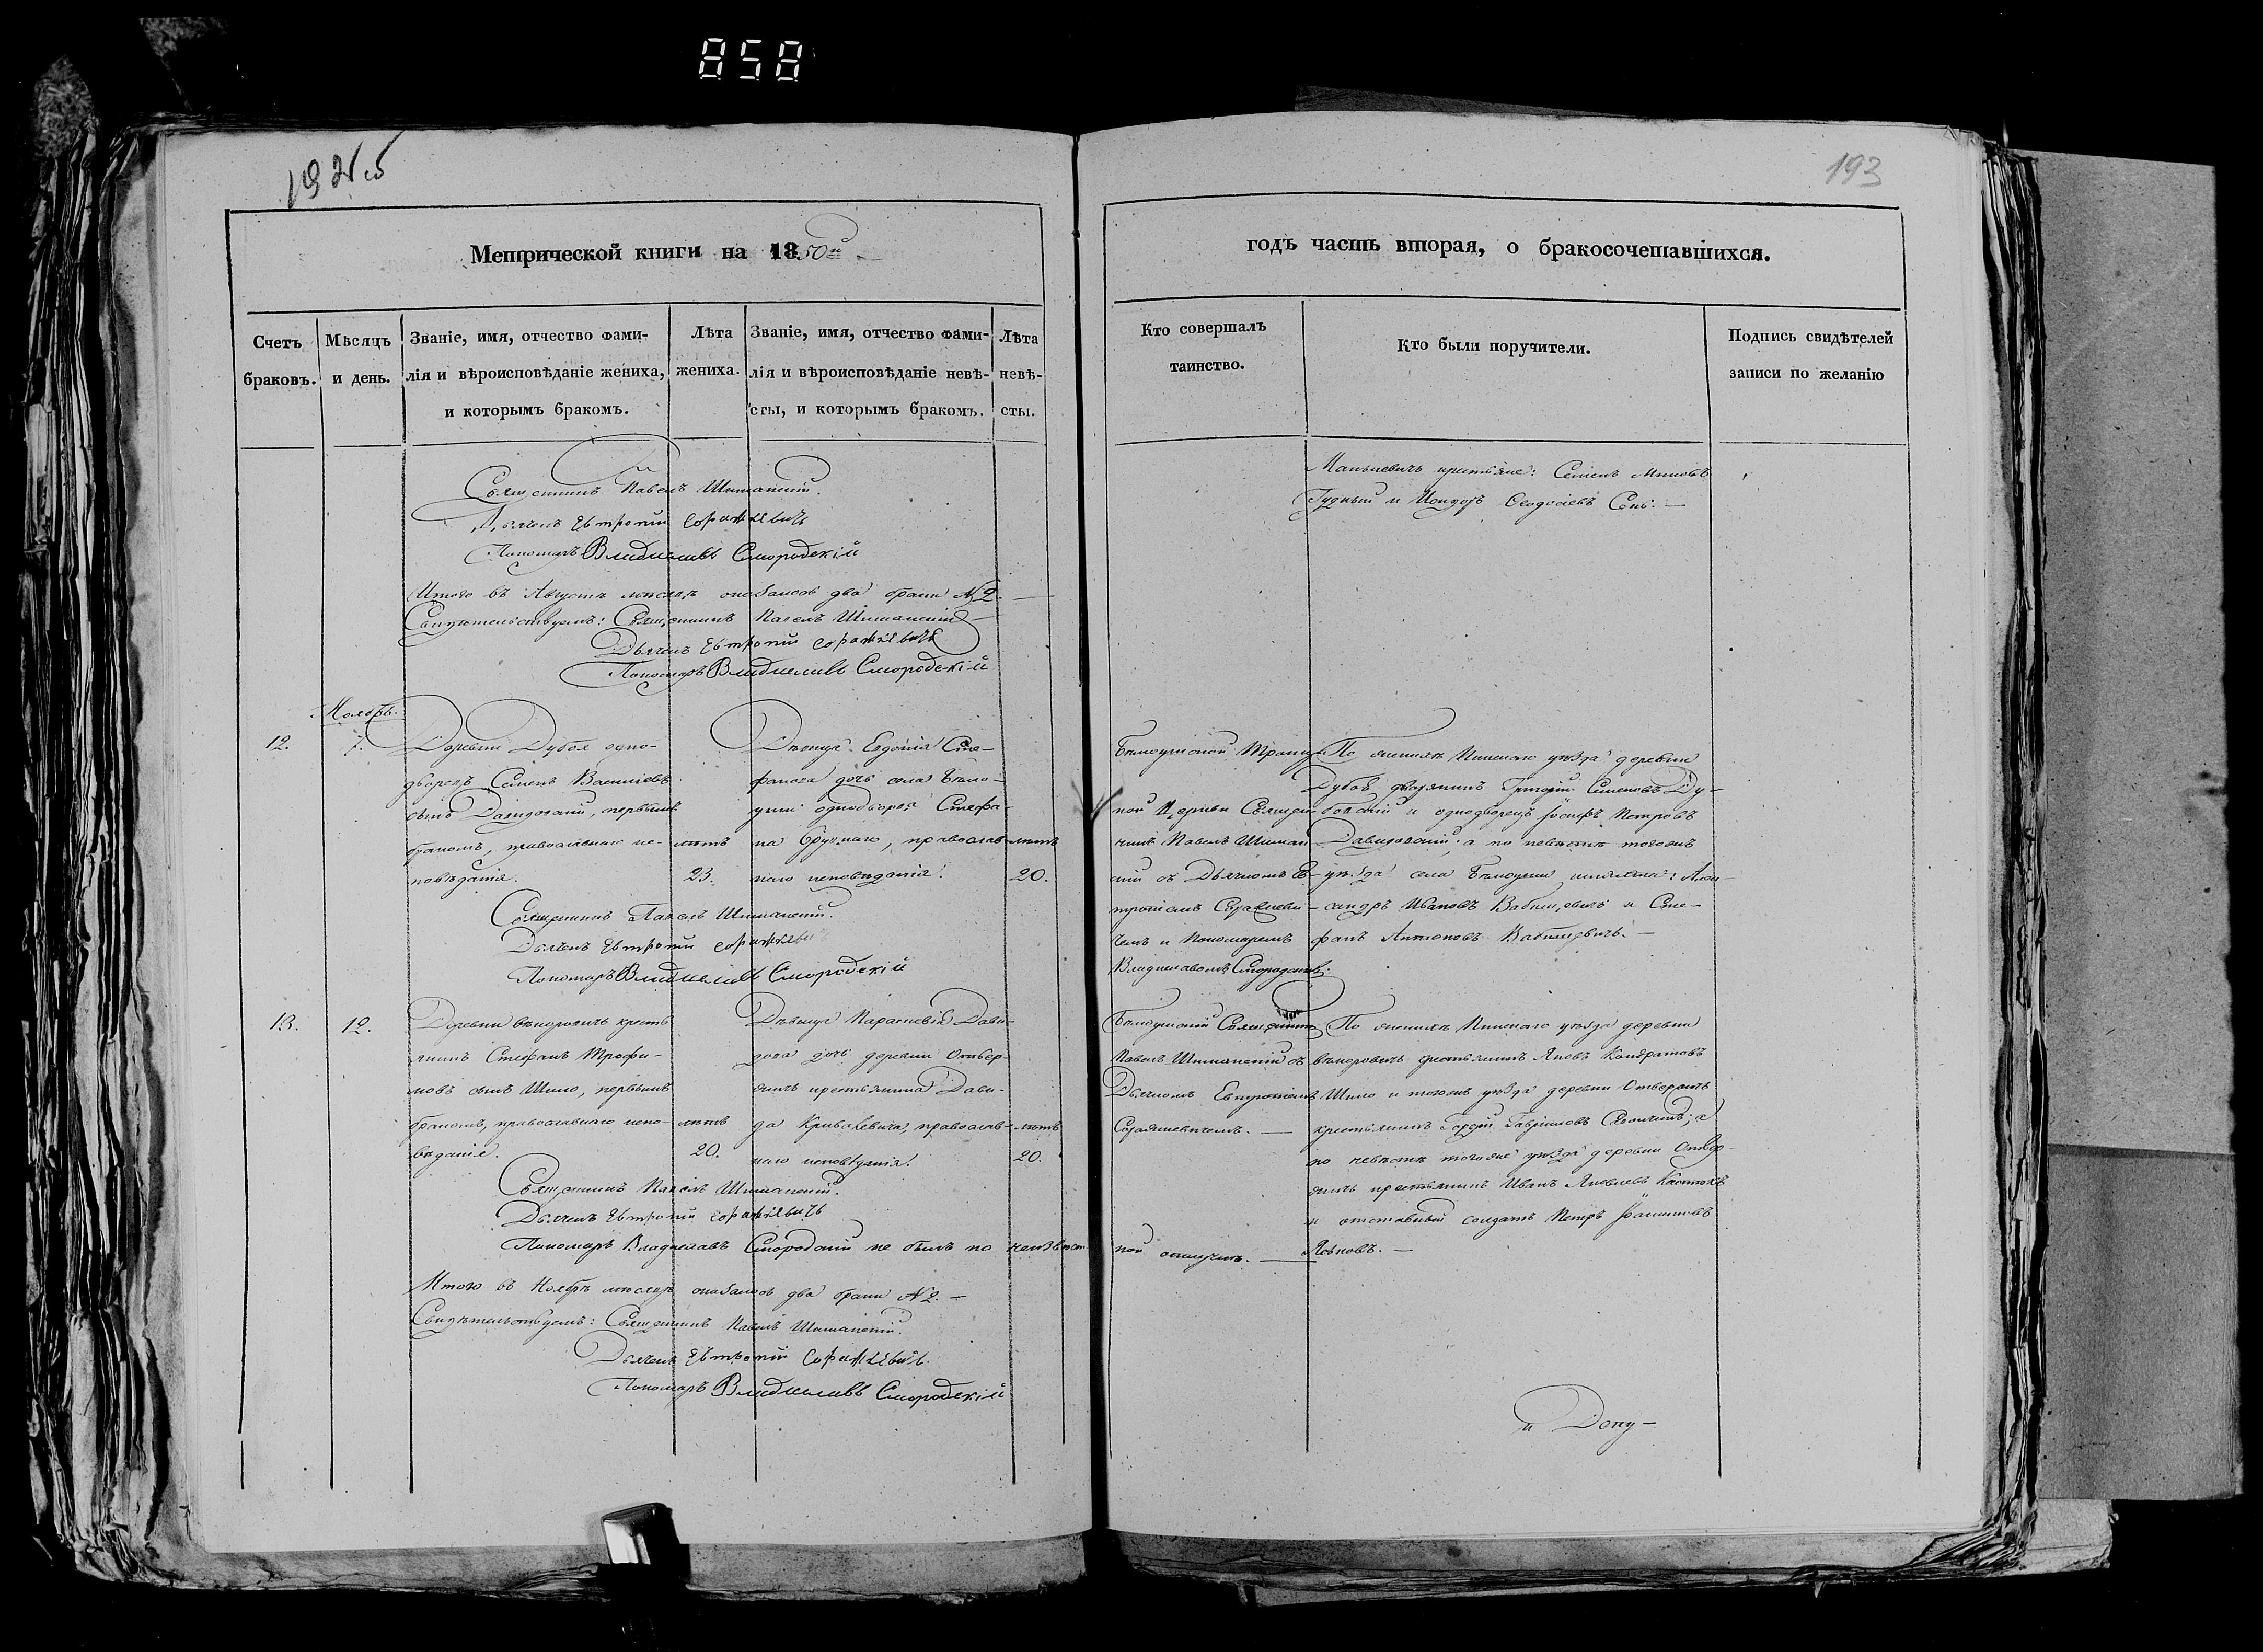 858
193
Метрической книги на 1850й
годъ часть вторая, о бракосочетавшихся.
Счетъ браковъ.
Мѣсяцъ и день.
Званіе, имя, отчество фами-
лія и вѣроисповѣданіе жениха,
и которымъ бракомъ.
Лѣта
жениха.
Званіе, имя, отчество фами-
лія и вѣроисповѣданіе невѣ-
сты, и которымъ бракомъ.
Лѣта
невѣ-
сты.
Кто совершалъ
таинство.
Кто были поручители.
Подпись свидѣтелей
записи по желанію
Священникъ Павелъ Шиманскій.
Дьячекъ Евтропій
Пономаръ Владиславъ Смородскій
крестьяне: Семенъ
и Исидоръ Ѳеодосіевъ
Итого въ Августѣ мѣсяцѣ оказалось два брака №2.
Свидѣтельствуемъ: Священникъ Павелъ Шиманскій
Дьячекъ Евтропій
Пономаръ Владиславъ Смородскій
Ноябрь.
12.
7.
Деревни Дубоя одно-
дворецъ Семенъ Васильевъ
сынъ Давидовскій, первымъ
бракомъ, православнаго ис-
повѣданія.
лѣтъ
23.
Дѣвица Евдокія Сте-
фанова дочь села Бѣло-
уши однодворца Стефа-
на православ-
наго исповѣданія.
лѣтъ
20.
Бѣлоушской Троиц-
кой Церкви Священ-
никъ Павелъ Шиман-
скій съ Дьячкомъ Ев-
тропіемъ
чемъ и Пономаремъ
Владиславомъ Смородскимъ.
По женихѣ Пинскаго уѣзда деревни
Дубоя дворянинъ Григорій Семеновъ Ду-
бойскій и однодворецъ Іосифъ Петровъ
Давидовскій; а по невѣстѣ тогожъ
уѣзда села Бѣлоуши Алек-
сандръ Ивановъ и Сте-
фанъ Антоновъ
Священникъ Павелъ Шиманскій.
Дьячекъ Евтропій
Пономаръ Владиславъ Смородскій
13.
12.
Деревни кресть-
янинъ Стефанъ Трофи-
мовъ сынъ Шило, первымъ
бракомъ, православнаго испо-
вѣданія.
лѣтъ
20.
Дѣвица Параскевія Дави-
дова дочь деревни Отвер-
жичъ крестьянина Дави-
да православ-
наго исповѣданія.
лѣтъ
20.
Бѣлоушскій Священникъ
Павелъ Шиманскій съ
Дьячкомъ Евтропіемъ
По женихѣ Пинскаго уѣзда деревни
крестьянинъ Яковъ Кондратовъ
Шило и тогожъ уѣзда деревни Отвержичъ
крестьянинъ Гордій Гавриловъ а
по невѣстѣ тогоже уѣзда деревни Отвер-
жичъ крестьянинъ Иванъ Яковлевъ
и отставный солдатъ Петръ
Священникъ Павелъ Шиманскій.
Дьячекъ Евтропій
Пономаръ Владиславъ Смородскій не былъ по неизвѣст-
ной отлучкѣ.
Итого въ Ноябрѣ мѣсяцѣ оказалось два брака №2.
Свидѣтельствуемъ: Священникъ Павелъ Шиманскій.
Дьячекъ Евтропій
Пономаръ Владиславъ Смородскій